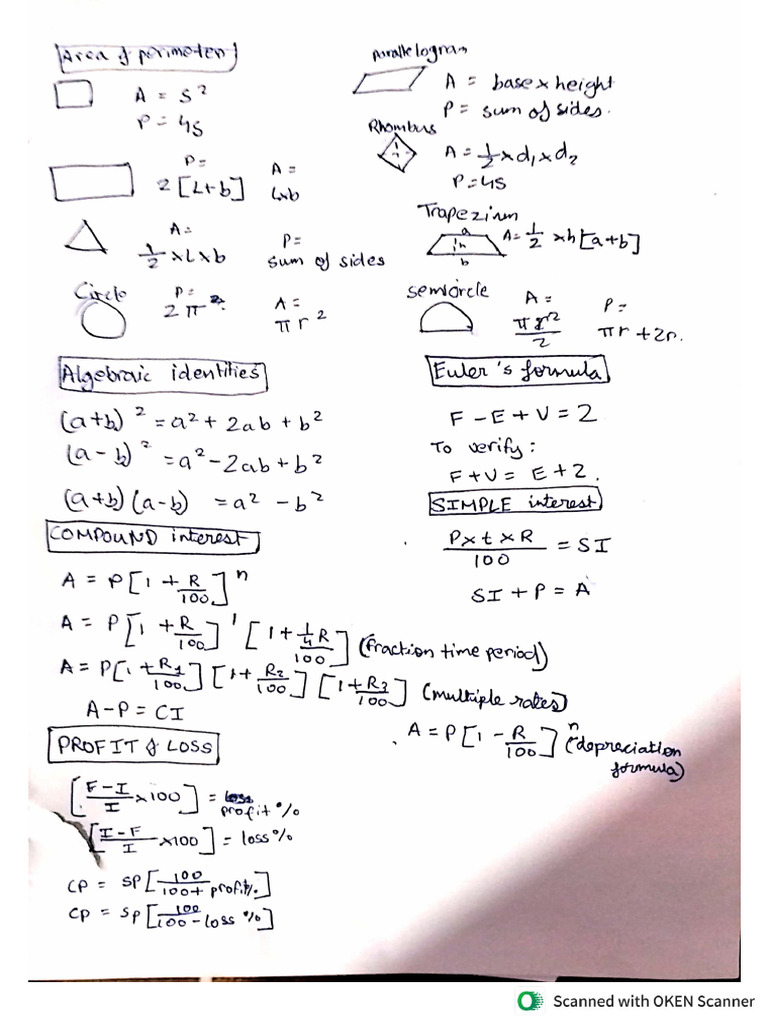 Area & perimeter
A = s²
P = 4s
P =
2[L+b]
A =
L×b
A =
1/2 × L × b
P =
sum of sides
Circle
P =
2π
A =
πr²
Parallelogram
A = base × height
P = sum of sides.
Rhombus
A = 1/2 × d₁ × d₂
P = 4s
Trapezium
a
h
b
A = 1/2 × h[a+b]
Semicircle
A =
πr²/2
P =
πr + 2r.
Algebraic identities
(a+b)² = a² + 2ab + b²
(a-b)² = a² - 2ab + b²
(a+b)(a-b) = a² - b²
Euler's formula
F - E + V = 2
To verify:
F + V = E + 2.
SIMPLE interest
P × t × R / 100 = SI
SI + P = A
COMPOUND interest
A = P[1 + R/100]ⁿ
A = P[1 + R/100]¹ [1 + 1/4 R/100] (fraction time period)
A = P[1 + R₁/100] [1 + R₂/100] [1 + R₃/100] (multiple rates)
A - P = CI
A = P[1 - R/100]ⁿ (depreciation
formula)
PROFIT & LOSS
[F - I / I × 100] = profit %
[I - F / I × 100] = loss %
CP = SP[100 / 100 + profit%]
CP = SP[100 / 100 - loss %]
Scanned with OKEN Scanner